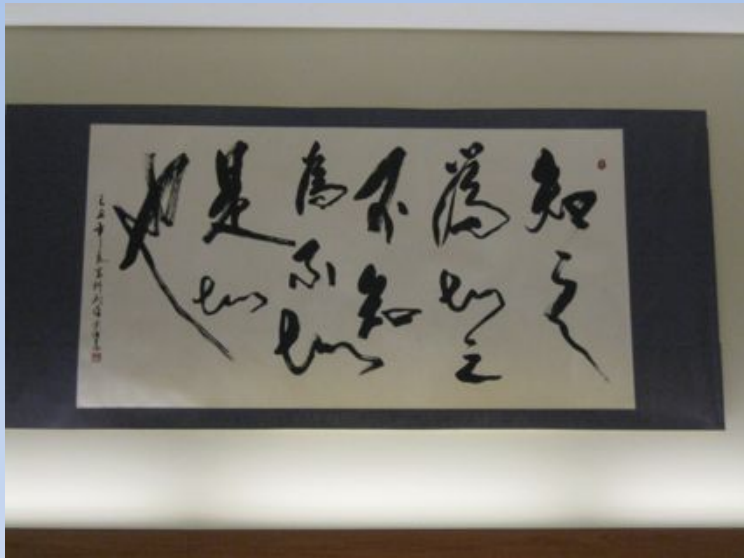 知之
為知之
不知
為不知
是知
也